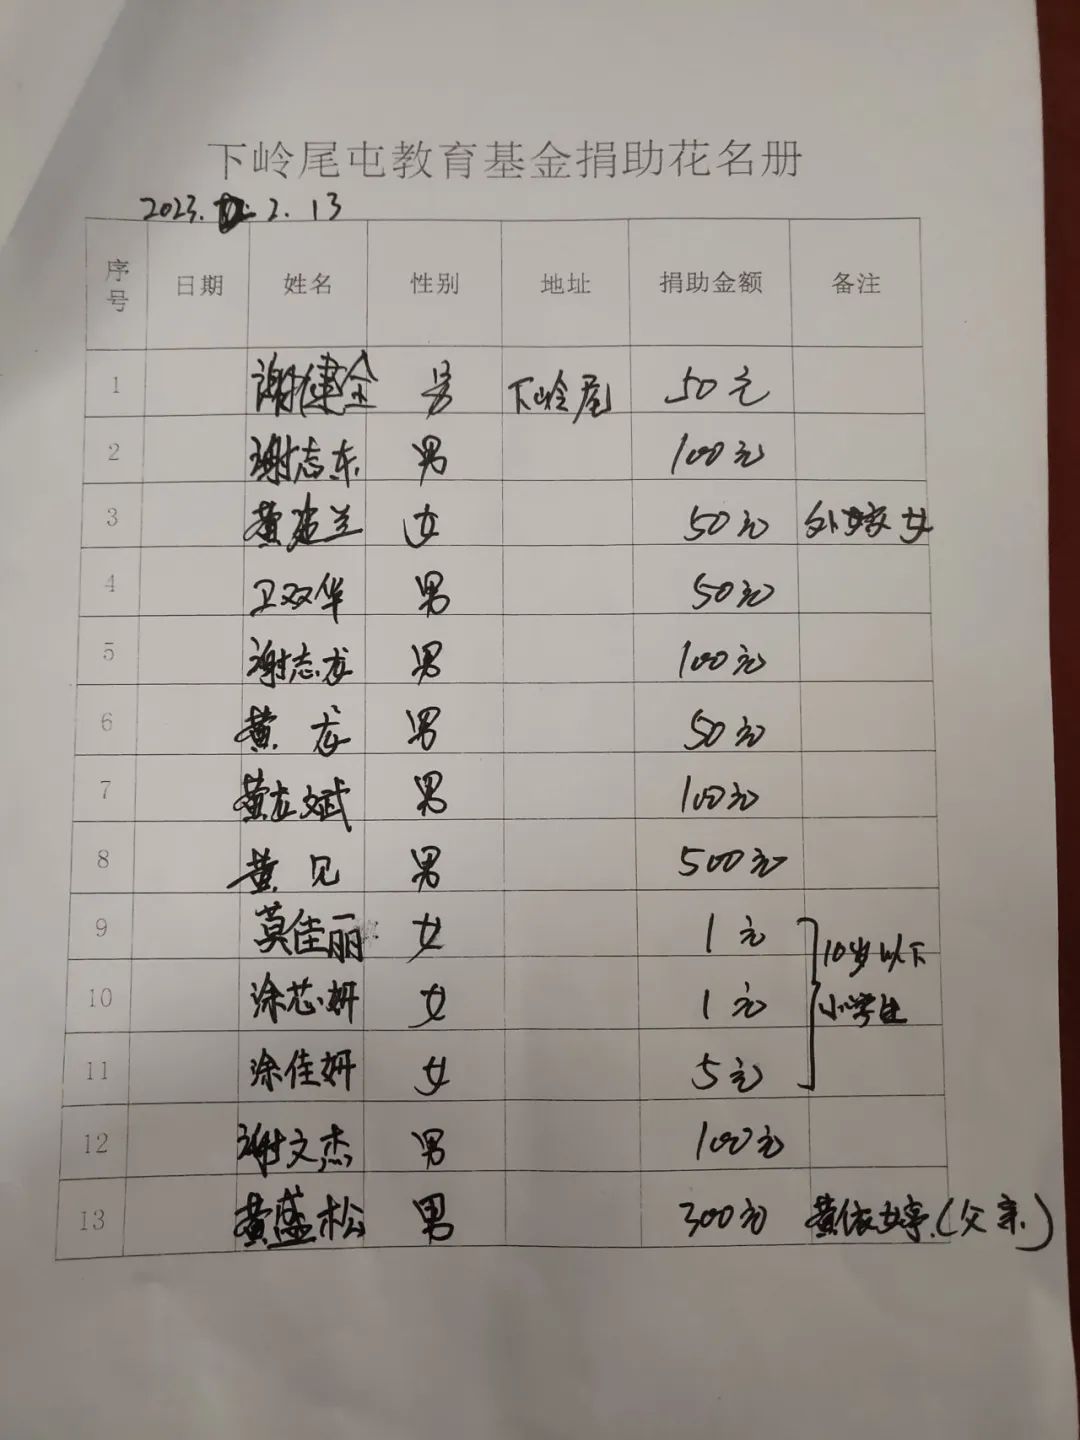 下岭尾屯教育基金捐助花名册
2023. 2. 13
序号 日期 姓名 性别 地址 捐助金额 备注
1 谢健全 男 下岭尾 50元
2 谢志东 男 100元
3 黄兰 女 50元 外嫁女
4 卫双华 男 50元
5 谢志龙 男 100元
6 黄龙 男 50元
7 黄龙斌 男 100元
8 黄见 男 500元
9 莫佳丽 女 1元
10岁以下
10 涂芯妍 女 1元 小学生
11 涂佳妍 女 5元
12 谢文杰 男 100元
13 黄盛松 男 300元 黄依婷(父亲)